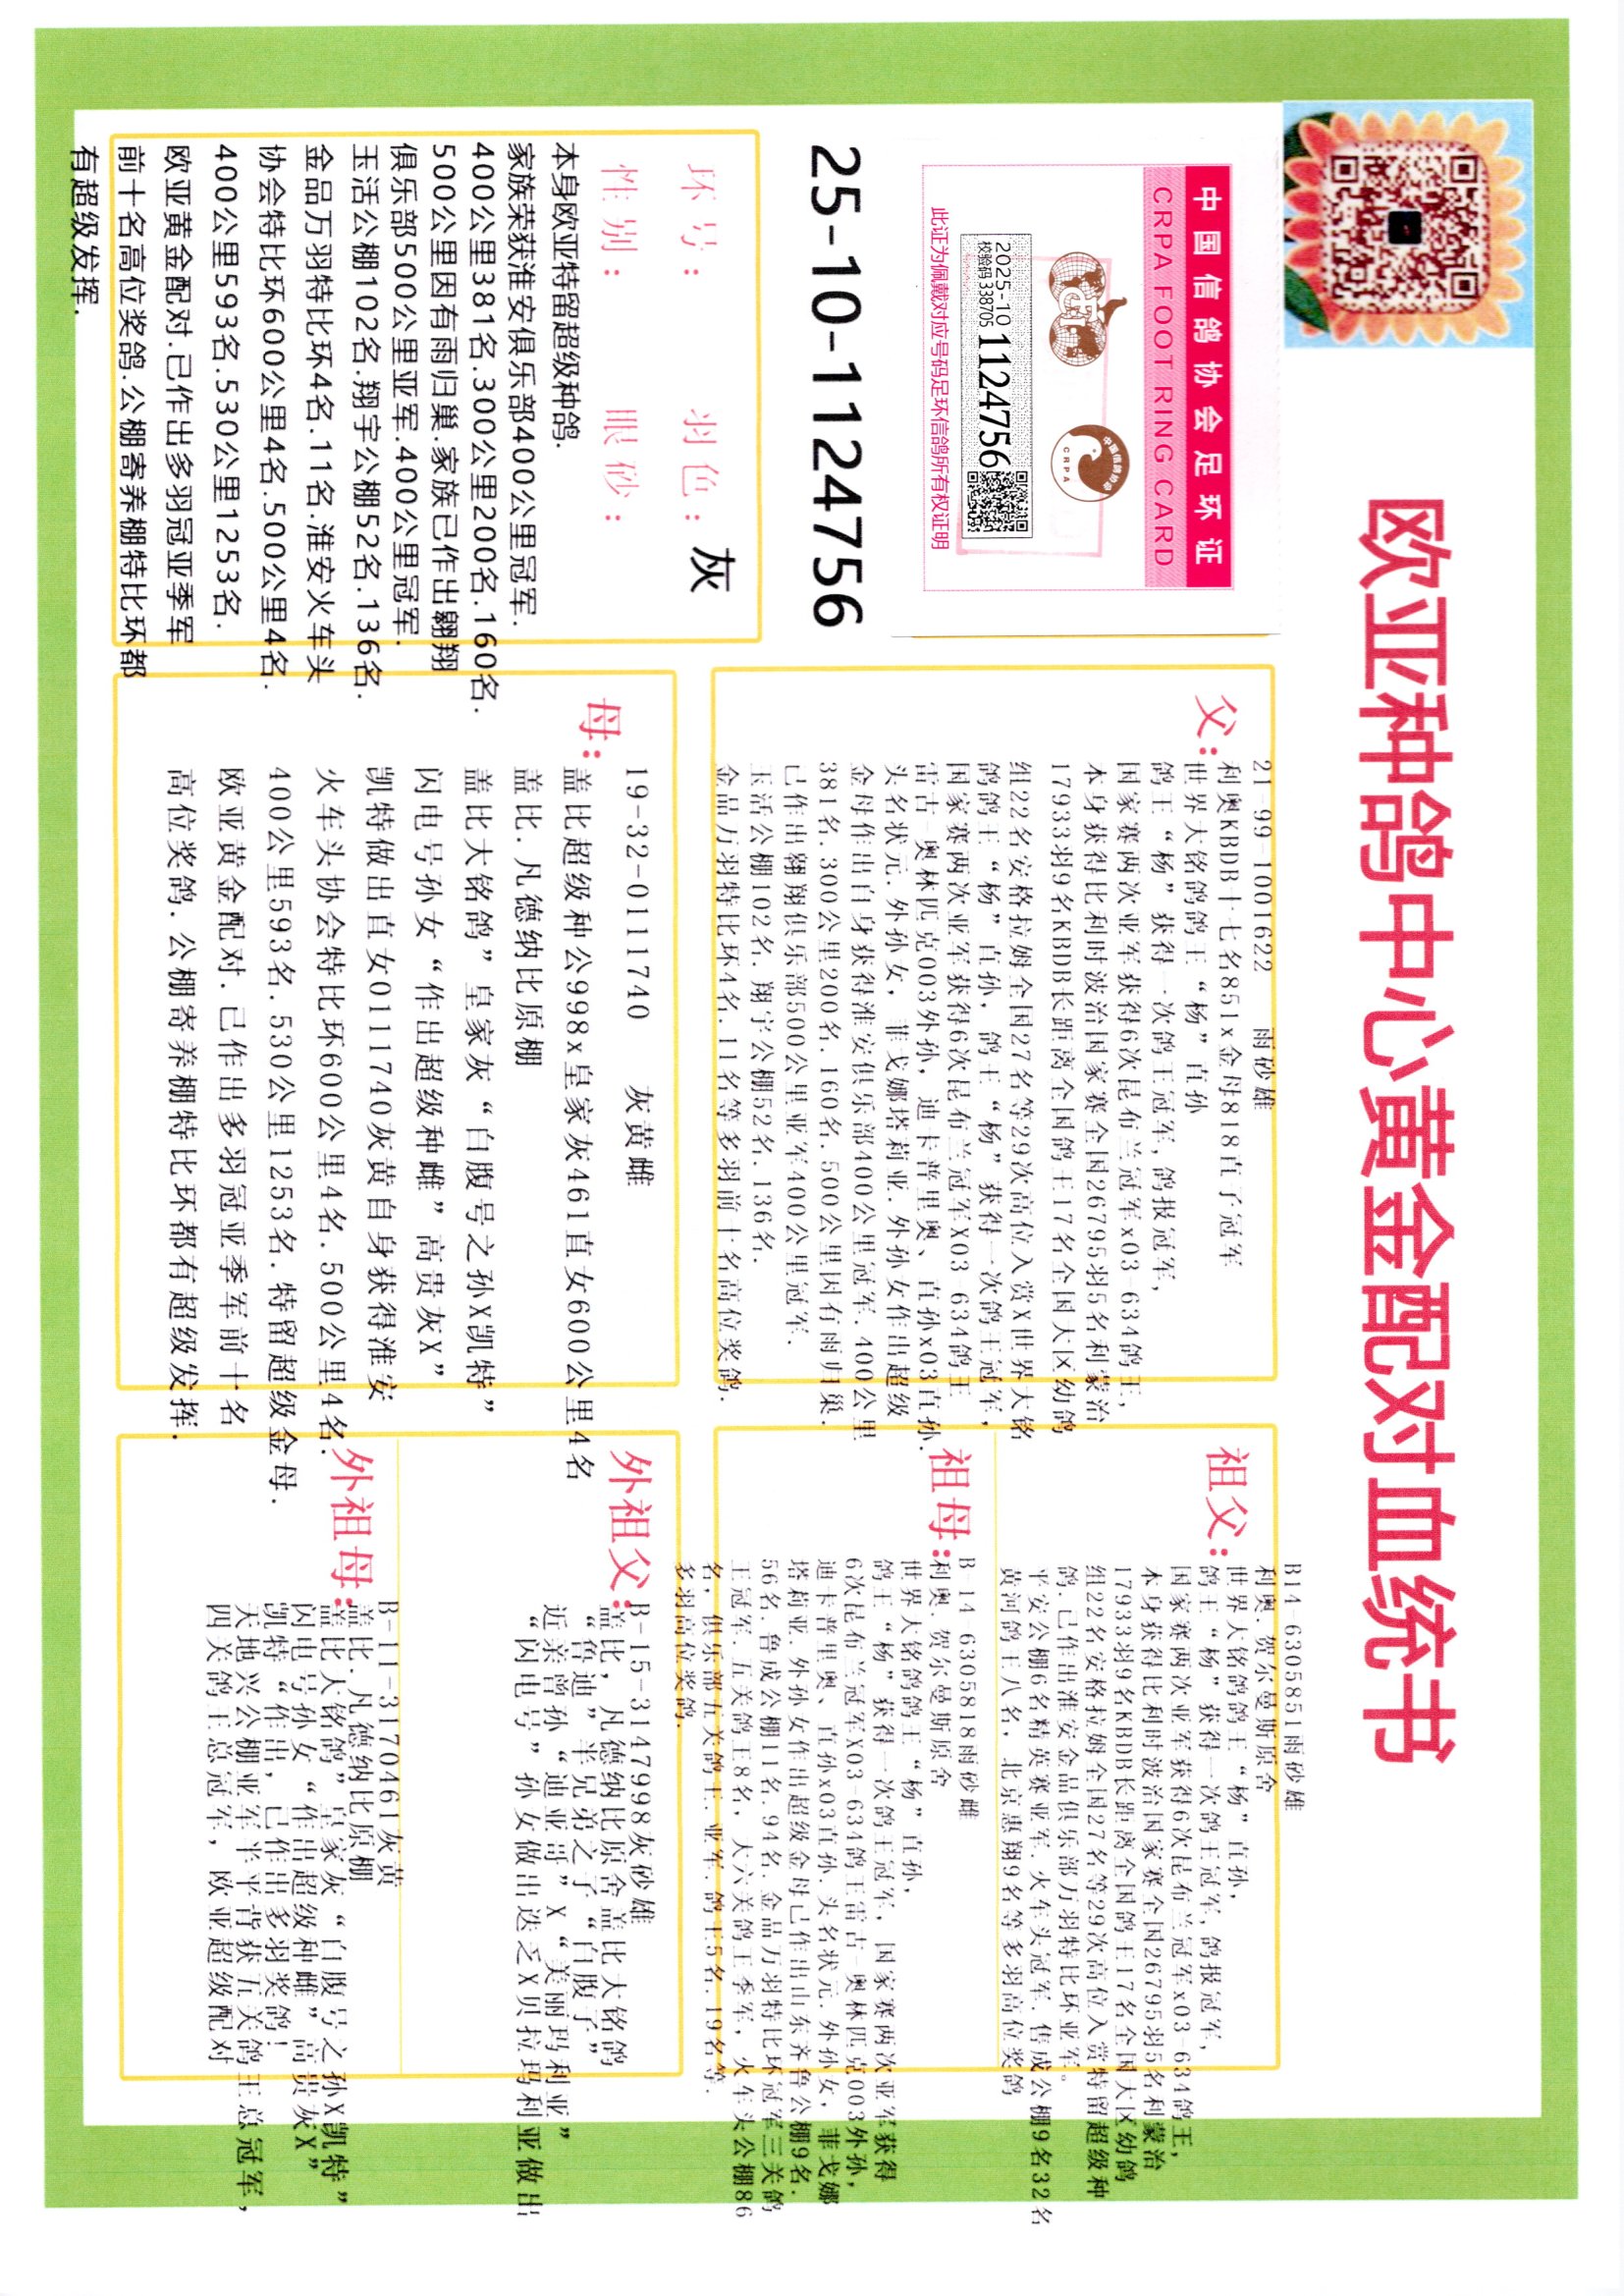 欧亚种鸽中心黄金配对血统书
中国信鸽协会足环证
CRPA FOOT RING CARD
中国信鸽协会
CRPA
2025-10 1124756
校验码 338705
此证为佩戴对应号码足环信鸽所有权证明
25-10-1124756
环号:
羽色: 灰
性别:
眼砂:
本身欧亚特留超级种鸽.
家族荣获淮安俱乐部400公里冠军.
400公里381名.300公里200名.160名.
500公里因有雨归巢.家族已作出翱翔
俱乐部500公里亚军.400公里冠军.
玉活公棚102名.翔宇公棚52名.136名.
金品万羽特比环4名.11名.淮安火车头
协会特比环600公里4名.500公里4名.
400公里593名.530公里1253名.
欧亚黄金配对.已作出多羽冠亚季军
前十名高位奖鸽.公棚寄养棚特比环都
有超级发挥.
父:
21-99-1001622 雨砂雄
利奥KBDB十七名851x金母818直子冠军
世界大铭鸽鸽王“杨”直孙
鸽王“杨”获得一次鸽王冠军,鸽报冠军,
国家赛两次亚军获得6次昆布兰冠军x03-634鸽王,
本身获得比利时波治国家赛全国26795羽5名利蒙治
17933羽9名KBDB长距离全国鸽王17名全国大区幼鸽
组22名安格拉姆全国27名等29次高位入赏X世界大铭
鸽鸽王“杨”直孙,鸽王“杨”获得一次鸽王冠军,
国家赛两次亚军获得6次昆布兰冠军X03-634鸽王
雷古-奥林匹克003外孙,迪卡普里奥、直孙x03直孙.
头名状元.外孙女,菲戈娜塔莉亚.外孙女作出超级
金母作出自身获得淮安俱乐部400公里冠军.400公里
381名.300公里200名.160名.500公里因有雨归巢.
已作出翱翔俱乐部500公里亚军400公里冠军.
玉活公棚102名.翔宇公棚52名.136名.
金品万羽特比环4名.11名等多羽前十名高位奖鸽.
母:
19-32-0111740 灰黄雌
盖比超级种公998x皇家灰461直女600公里4名
盖比.凡德纳比原棚
盖比大铭鸽”皇家灰“白腹号之孙X凯特”
闪电号孙女“作出超级种雌”高贵灰X”
凯特做出直女0111740灰黄自身获得淮安
火车头协会特比环600公里4名.500公里4名.
400公里593名.530公里1253名.特留超级金母.
欧亚黄金配对.已作出多羽冠亚季军前十名
高位奖鸽.公棚寄养棚特比环都有超级发挥.
祖父:
B14-6305851雨砂雄
利奥.贺尔曼斯原舍
世界大铭鸽鸽王“杨”直孙,
鸽王“杨”获得一次鸽王冠军,鸽报冠军,
国家赛两次亚军获得6次昆布兰冠军x03-634鸽王,
本身获得比利时波治国家赛全国26795羽5名利蒙治
17933羽9名KBDB长距离全国鸽王17名全国大区幼鸽
组22名安格拉姆全国27名等29次高位入赏特留超级种
鸽.已作出淮安金品俱乐部万羽特比环亚军。
平安公棚6名精英赛亚军.火车头冠军.售成公棚9名32名
黄河鸽王八名,北京惠翔9名等多羽高位奖鸽
祖母:
B-14-6305818雨砂雌
利奥.贺尔曼斯原舍
世界大铭鸽鸽王“杨”直孙,
鸽王“杨”获得一次鸽王冠军,国家赛两次亚军获得
6次昆布兰冠军X03-634鸽王雷古-奥林匹克003外孙,
迪卡普里奥、直孙x03直孙.头名状元.外孙女,菲戈娜
塔莉亚.外孙女作出超级金母已作出山东齐鲁公棚9名.
56名.鲁成公棚11名.94名.金品万羽特比环冠军三关鸽
王冠军.五关鸽王8名,大六关鸽王季军,火车头公棚86
名,俱乐部五关鸽王.亚军.鸽王5名.19名等.
多羽高位奖鸽.
外祖父:
B-15-3147998灰砂雄
盖比,凡德纳比原舍盖比大铭鸽
“鲁迪”半兄弟之子“白腹子”
近亲曾孙“迪亚哥”X“美丽玛利亚”
“闪电号”孙女做出迭戈X贝拉玛利亚做出
外祖母:
B-11-3170461灰黄
盖比.凡德纳比原棚
盖比大铭鸽”皇家灰“白腹号之孙X凯特”
闪电号孙女“作出超级种雌”高贵灰X”
凯特“作出,已作出多羽奖鸽!
天地兴公棚亚军半平背获五关鸽王总冠军,
四关鸽王总冠军,欧亚超级配对